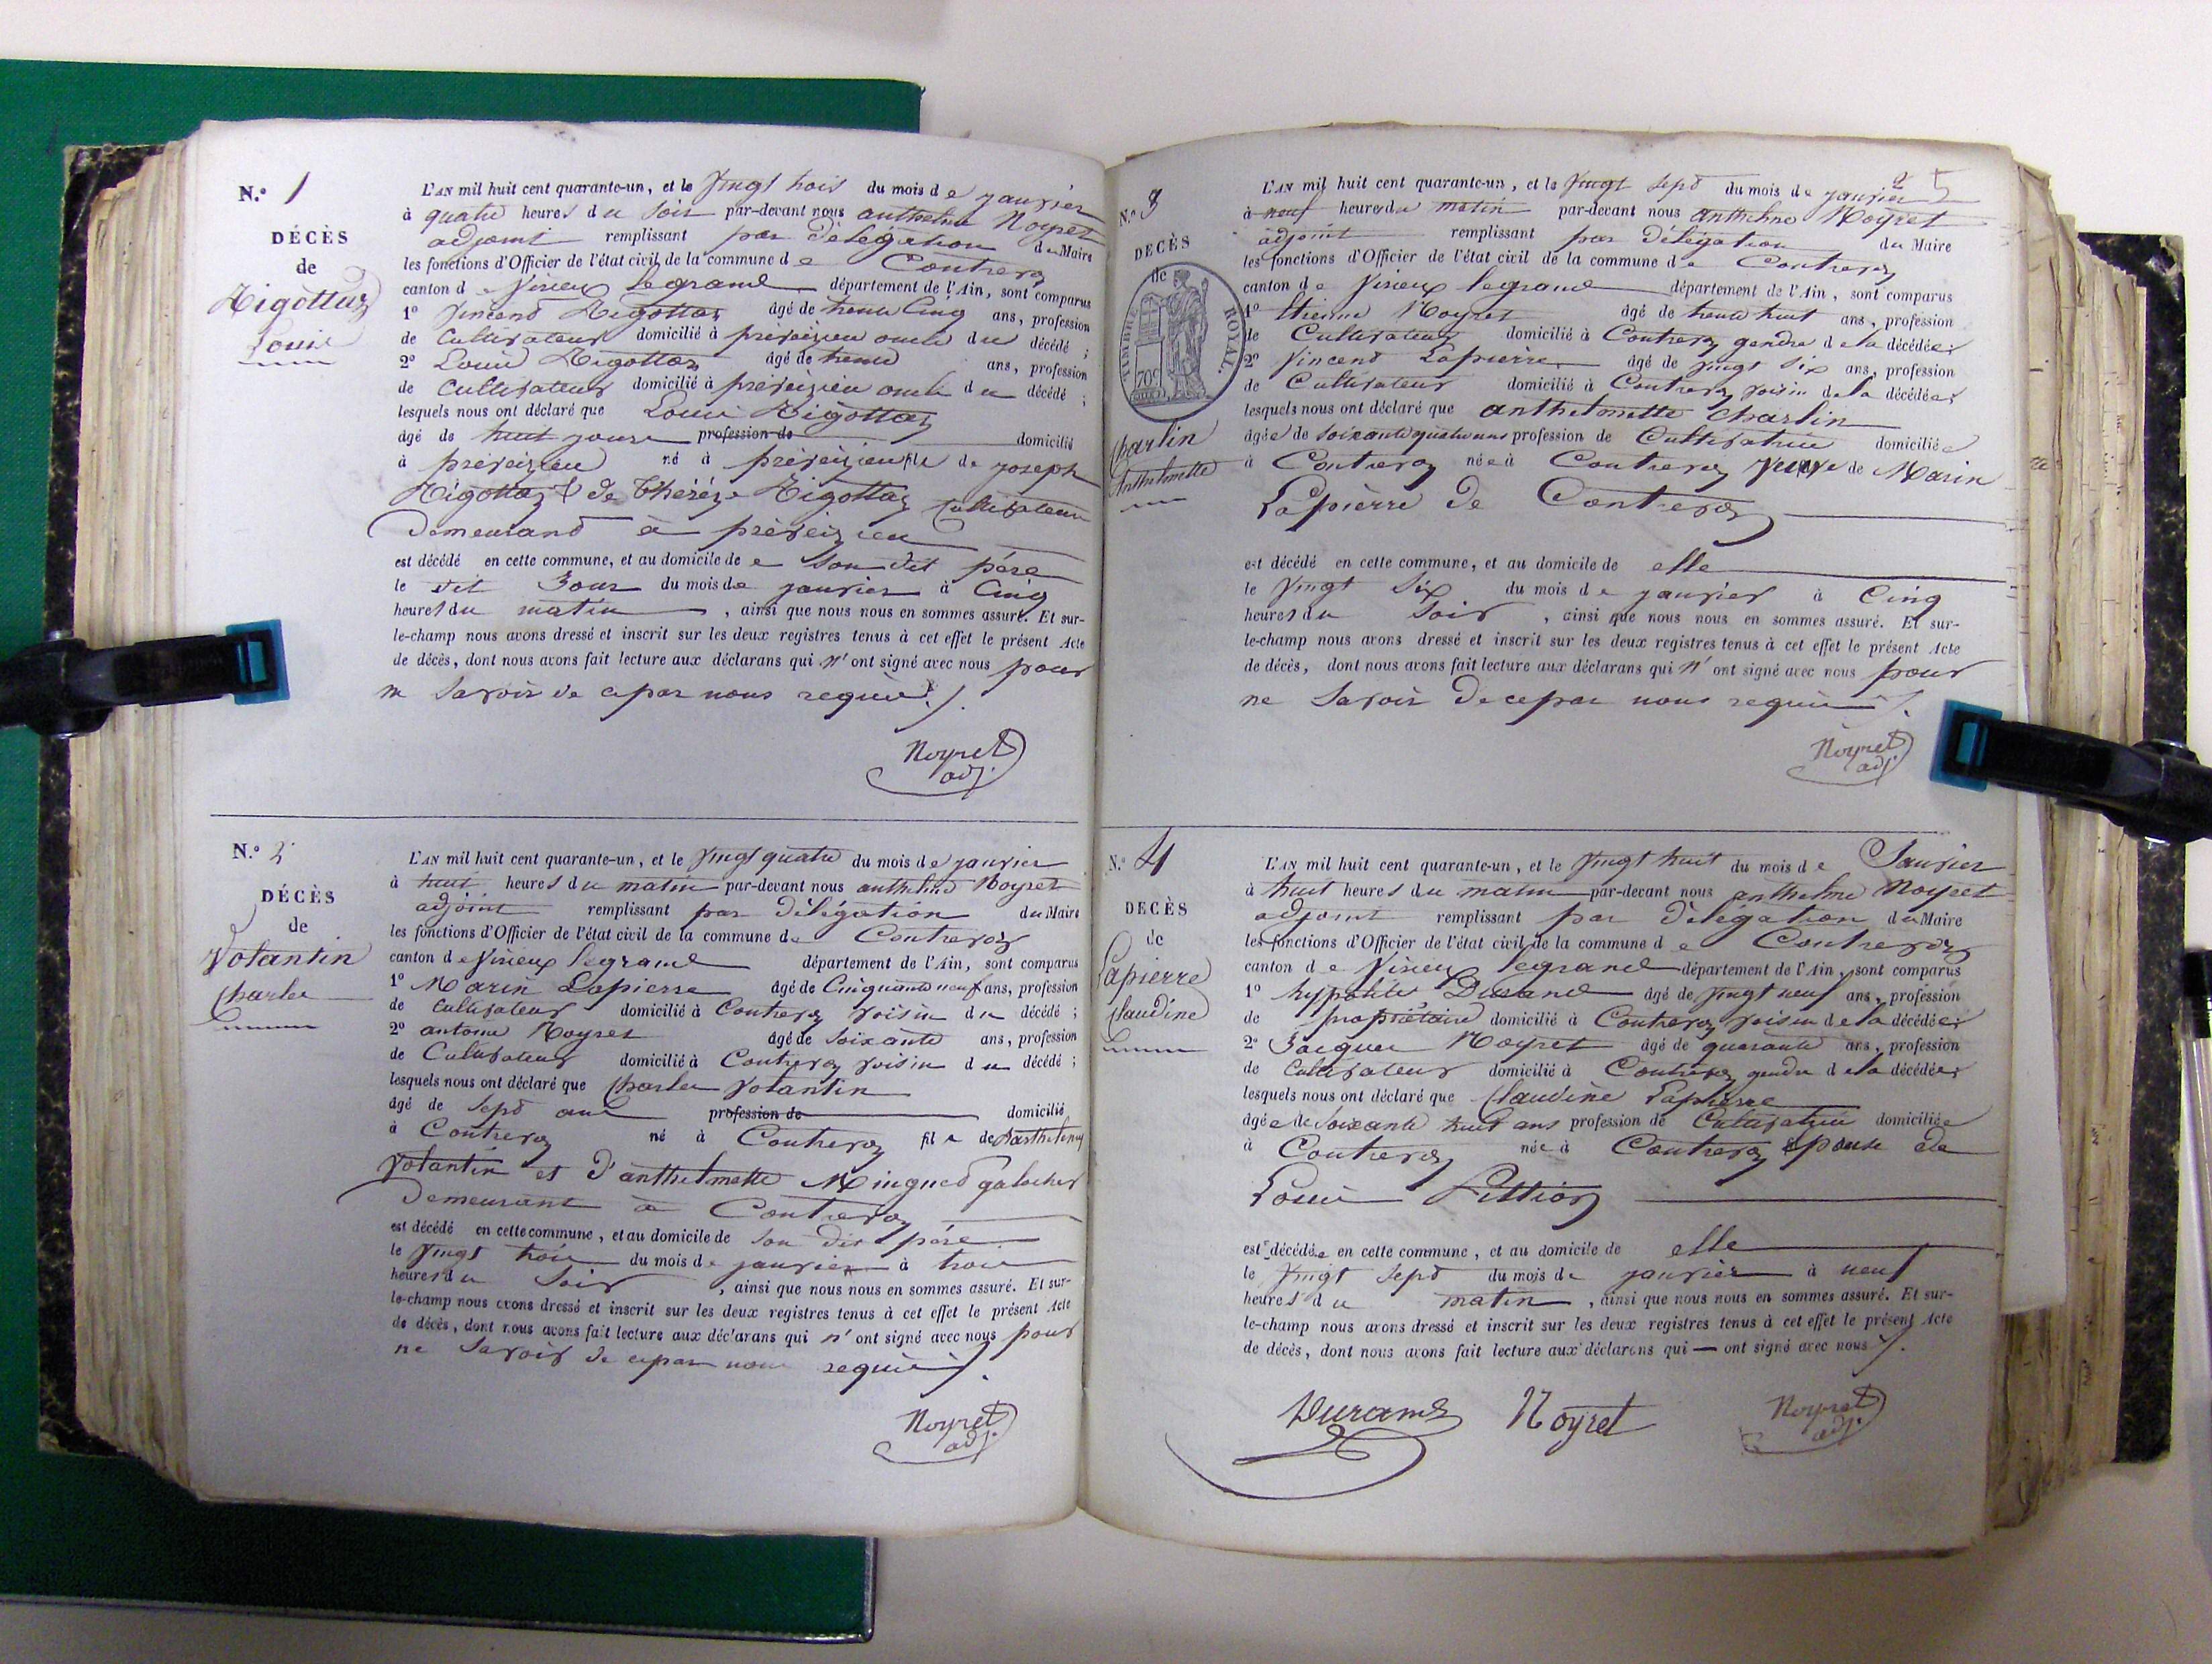 N.° 1
DÉCÈS
de
Rigottaz
Louis
L'AN mil huit cent quarante-un, et le vingt trois du mois de janvier
à quatre heures du soir par-devant nous anthelme Noyret
adjoint remplissant par délégation du Maire
les fonctions d'Officier de l'état civil de la commune de Contrevoz
canton de Virieux legrand département de l'Ain, sont comparus
1° Vincend Rigottaz âgé de trente Cinq ans, profession
de Cultivateur domicilié à préveizieu oncle du décédé ;
2° Louis Rigottaz âgé de trente ans, profession
de Cultivateur domicilié à préveizieu oncle du décédé ;
lesquels nous ont déclaré que Louis Rigottaz
âgé de huit jours profession de domicilié
à préveizieu né à préveizieu fils de joseph
Rigottaz & de Thérèze Rigottaz Cultivateur
Demeurand à préveizieu
est décédé en cette commune, et au domicile de son dit père
le dit Jour du mois de janvier à Cinq
heures du matin , ainsi que nous nous en sommes assuré. Et sur-
le-champ nous avons dressé et inscrit sur les deux registres tenus à cet effet le présent Acte
de décès, dont nous avons fait lecture aux déclarans qui n'ont signé avec nous pour
ne Savoir de cepar nous requis ./.
Noyret
adj.
N.° 2
DÉCÈS
de
Volantin
Charles
L'AN mil huit cent quarante-un, et le vingt quatre du mois de janvier
à huit heures du matin par-devant nous anthelme Noyret
adjoint remplissant par délégation du Maire
les fonctions d'Officier de l'état civil de la commune de Contrevoz
canton de Virieux legrand département de l'Ain, sont comparus
1° Marin Lapierre âgé de Cinquante neuf ans, profession
de Cultivateur domicilié à Contrevoz voisin du décédé ;
2° antoine Noyret âgé de Soixante ans, profession
de Cultivateur domicilié à Contrevoz voisin du décédé ;
lesquels nous ont déclaré que Charles Volantin
âgé de Sept ans profession de domicilié
à Contrevoz né à Contrevoz fils de Barthelemy
Volantin et D'anthelmette Mingued galocher
Demeurant à Contrevoz
est décédé en cette commune, et au domicile de Son dit père
le vingt trois du mois de janvier à trois
heures du Soir , ainsi que nous nous en sommes assuré. Et sur-
le-champ nous avons dressé et inscrit sur les deux registres tenus à cet effet le présent Acte
de décès, dont nous avons fait lecture aux déclarans qui n'ont signé avec nous pour
ne Savoir de cepar nous requis ./.
Noyret
adj.
2 5
N.° 3
DÉCÈS
de
TIMBRE ROYAL.
70c
Charlin
Anthelmette
L'AN mil huit cent quarante-un, et le vingt Sept du mois de janvier
à neuf heures du matin par-devant nous anthelme Noyret
adjoint remplissant par Délégation du Maire
les fonctions d'Officier de l'état civil de la commune de Contrevoz
canton de Virieux legrand département de l'Ain, sont comparus
1° Etienne Noyret âgé de trente huit ans, profession
de Cultivateur domicilié à Contrevoz gendre de la décédée ;
2° Vincend Lapierre âgé de vingt Six ans, profession
de Cultivateur domicilié à Contrevoz voisin de la décédée ;
lesquels nous ont déclaré que anthelmette Charlin
âgée de soixante quatre ans profession de Cultivatrice domiciliée
à Contrevoz née à Contrevoz veuve de Marin
Lapierre de Contrevoz
est décédé en cette commune, et au domicile de elle
le vingt Six du mois de janvier à Cinq
heures du Soir , ainsi que nous nous en sommes assuré. Et sur-
le-champ nous avons dressé et inscrit sur les deux registres tenus à cet effet le présent Acte
de décès, dont nous avons fait lecture aux déclarans qui n'ont signé avec nous pour
ne Savoir de cepar nous requis ./.
Noyret
adj.
N.° 4
DÉCÈS
de
Lapierre
Claudine
L'AN mil huit cent quarante-un, et le vingt huit du mois de Janvier
à huit heures du matin par-devant nous anthelme Noyret
adjoint remplissant par délégation du Maire
les fonctions d'Officier de l'état civil de la commune de Contrevoz
canton de Virieux legrand département de l'Ain, sont comparus
1° hypolite Durand âgé de vingt neuf ans, profession
de propriétaire domicilié à Contrevoz voisin de la décédée ;
2° Jacques Noyret âgé de quarante ans, profession
de Cultivateur domicilié à Contrevoz gendre de la décédée ;
lesquels nous ont déclaré que Claudine Lapierre
âgée de Soixante huit ans profession de Cultivatrice domiciliée
à Contrevoz née à Contrevoz épouse de
Louis
est décédée en cette commune, et au domicile de elle
le vingt Sept du mois de janvier à neuf
heures du matin , ainsi que nous nous en sommes assuré. Et sur-
le-champ nous avons dressé et inscrit sur les deux registres tenus à cet effet le présent Acte
de décès, dont nous avons fait lecture aux déclarans qui — ont signé avec nous ./.
Durand Noyret Noyret
adj.